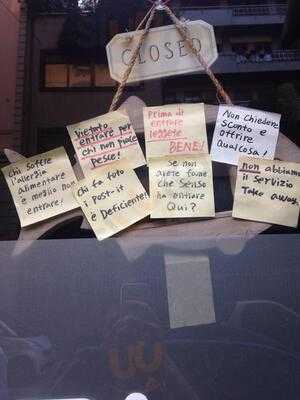 CLOSED
Chi soffre
l'allergie
alimentare
è meglio non
entrare!
Vietato
entrare per
chi non piace
pesce!
Chi fa foto
i Post-it
è Deficiente!
Prima di
entrare
leggete
BENE!
Se non
avete fame
che senso
ha entrare
Qui?
Non Chiedere
Sconto e
offrire
qualcosa!
non abbiamo
il servizio
Take away.